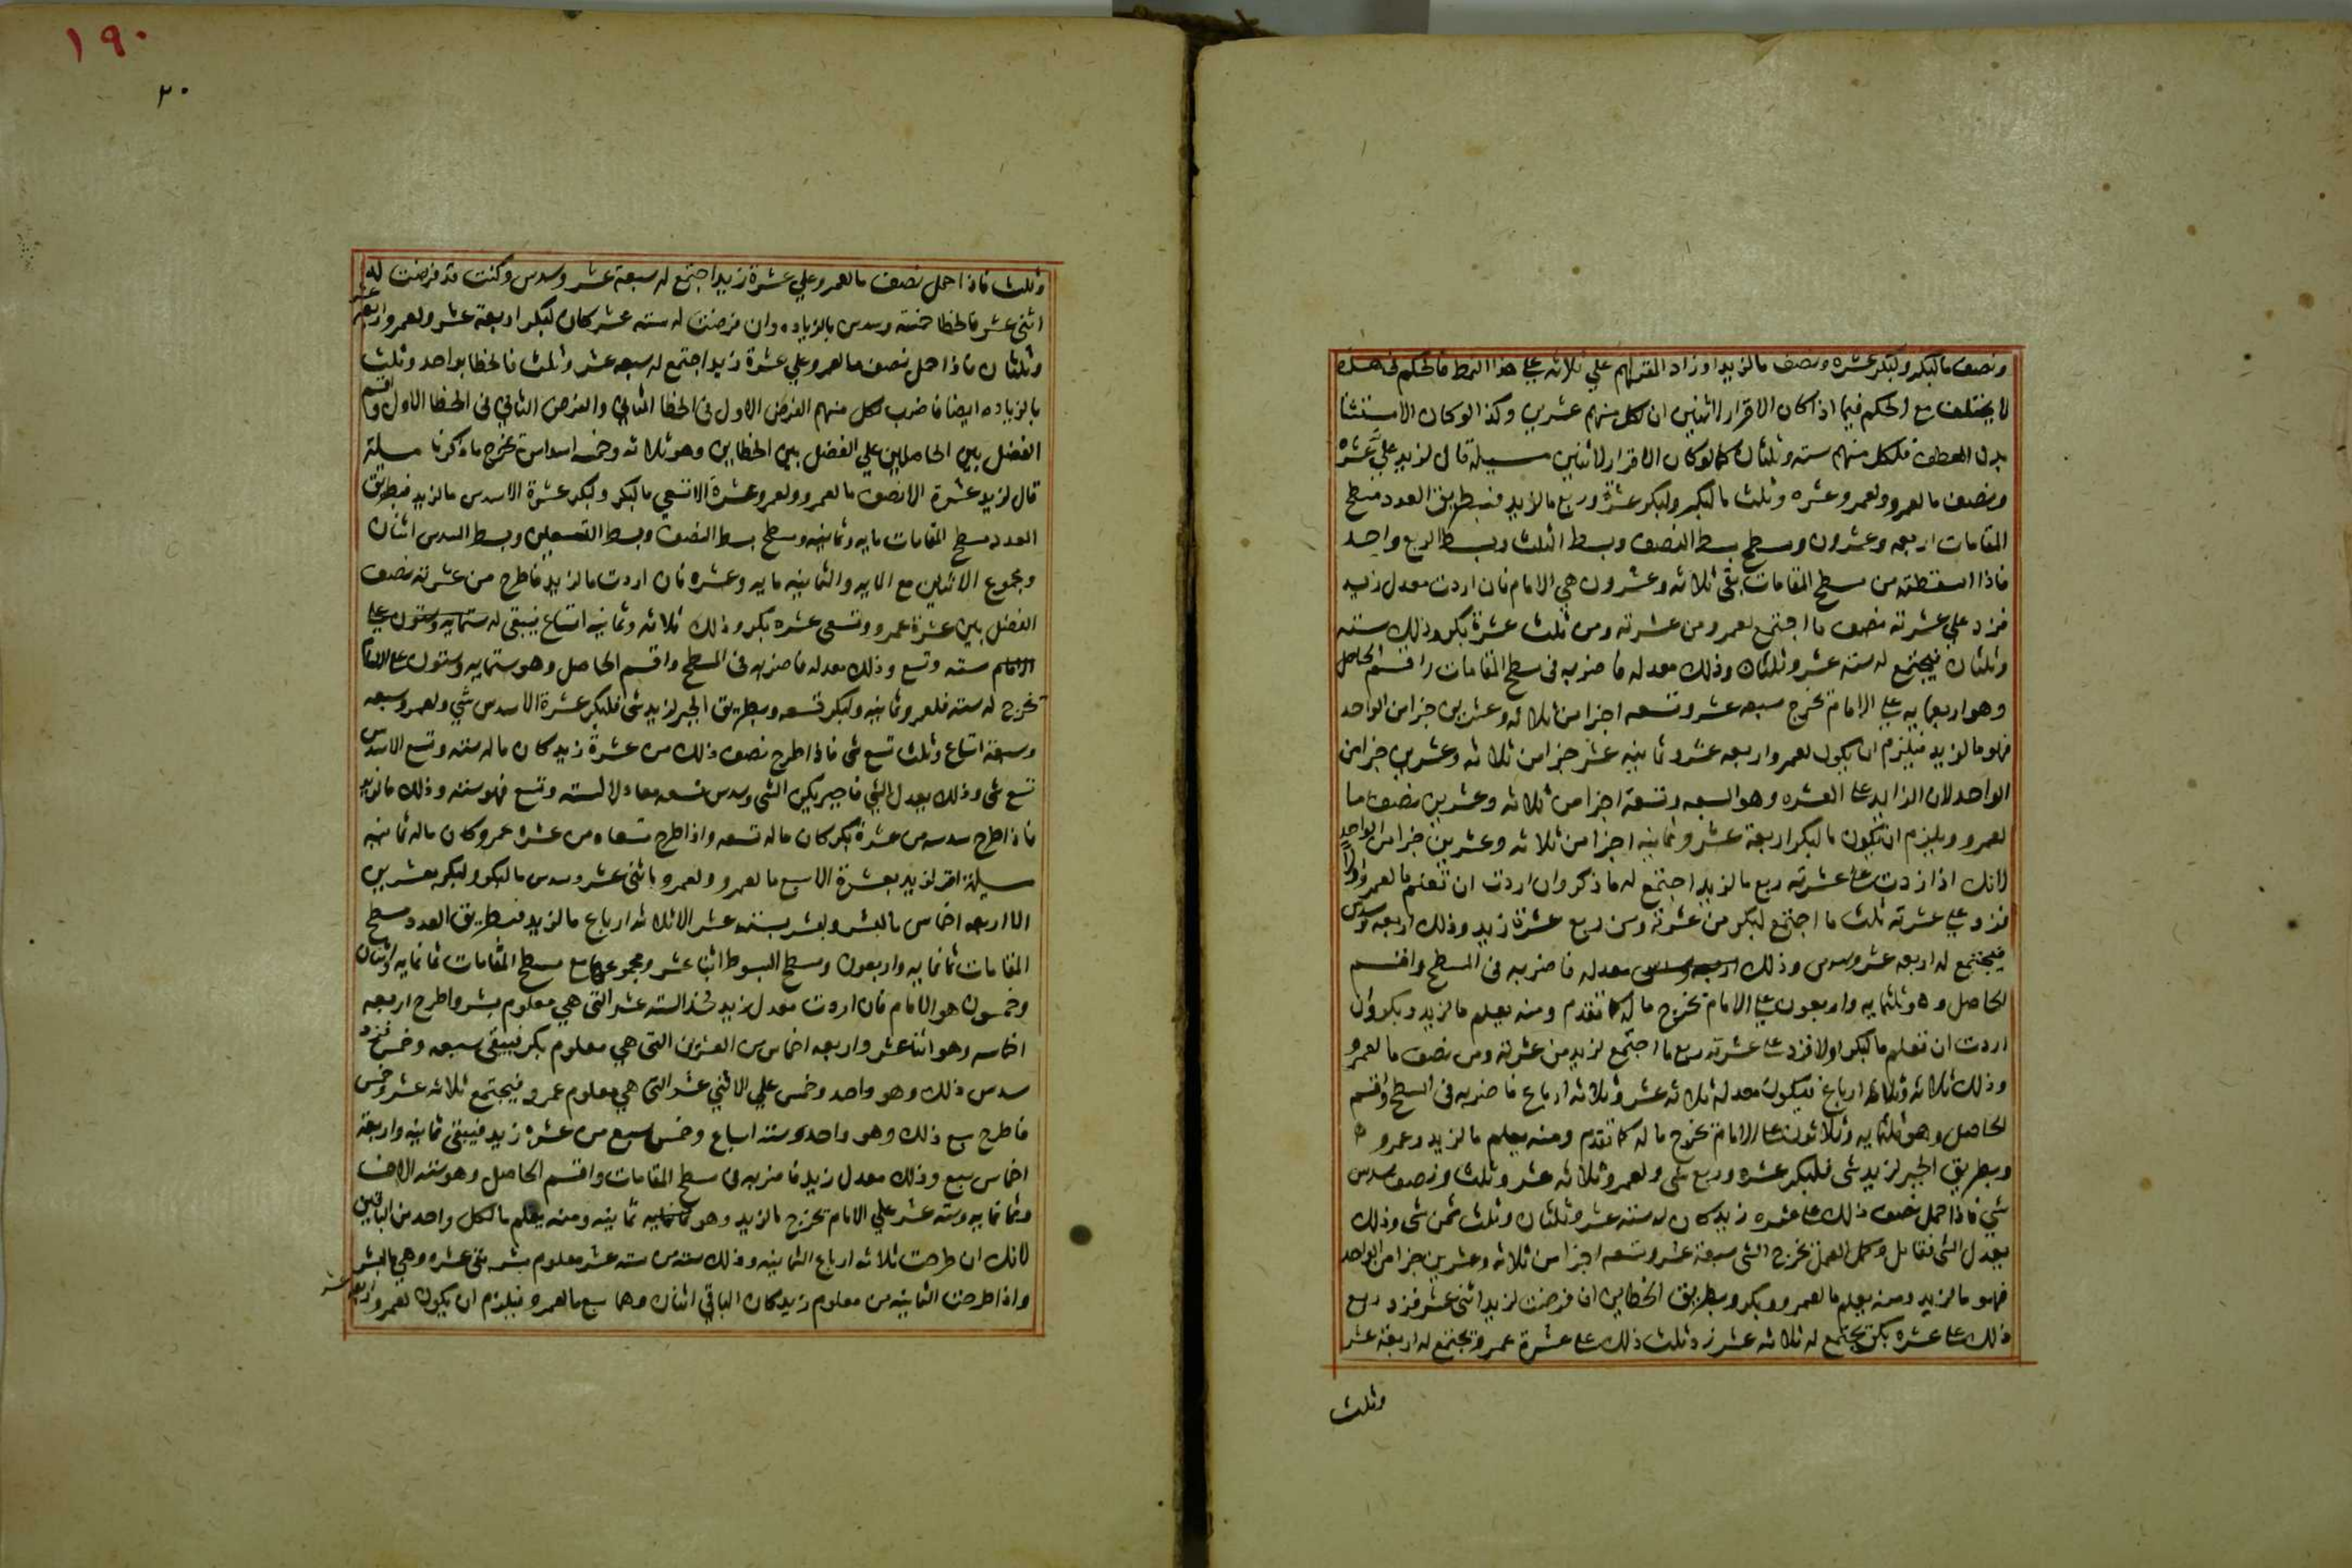 ونصف ما لبكر ولبكر عشره ونصف ما لزيد او زاد المقر لهم علي ثلاثه علي هذا النمط فالحكم في هذه
لا يختلف مع الحكم فيما اذا كان الاقرار لاثنين ان لكل منهم عشرين وكذا لو كان الاستثنا
بدل العطف فلكل منهم سته وثلثان كما لو كان الاقرار لاثنين مسيلة قال لزيد علي عشره
ونصف ما لعمرو ولعمرو عشره وثلث ما لبكر ولبكر عشرة وربع ما لزيد فبطريق العدد مسطح
المقامات اربعه وعشرون ومسطح بسط النصف وبسط الثلث وبسط الربع واحد
فاذا اسقطته من مسطح المقامات بقي ثلاثه وعشرون هي الامام فان اردت معدل زيد
فزد علي عشرته نصف ما اجتمع لعمرو من عشرته ومن ثلث عشرة بكر وذلك سته
وثلثان فيجتمع له سته عشر وثلثان وذلك معدله فاضربه في مسطح المقامات واقسم الحاصل
وهو اربعمايه علي الامام تخرج سبعه عشر وتسعه اجزا من ثلاثه وعشرين جزا من الواحد
فهو ما لزيد فيلزم ان يكون لعمرو اربعه عشر وثمانيه عشر جزا من ثلاثه وعشرين جزا من
الواحد لان الزايد علي العشره وهو السبعه وتسعة اجزا من ثلاثه وعشرين نصف ما
لعمرو ويلزم ان يكون ما لبكر اربعة عشر وثمانيه اجزا من ثلاثه وعشرين جزا من الواحد
لانك اذا زدت علي عشرته ربع ما لزيد اجتمع له ما ذكر وان اردت ان تعلم ما لعمرو اولا
فزد علي عشرته ثلث ما اجتمع لبكر من عشرته ومن ربع عشرة زيد وذلك اربعه وسدس
فيجتمع له اربعه عشر وسدس وذلك معدله فاضربه في المسطح واقسم
الحاصل وهو ثلثمايه واربعون علي الامام تخرج ما له كما تقدم ومنه يعلم ما لزيد وبكر وان
اردت ان تعلم ما لبكر اولا فزد علي عشرته ربع ما اجتمع لزيد من عشرته ومن نصف ما لعمرو
وذلك ثلاثه وثلاثه ارباع فيكون معدله ثلاثه عشر وثلاثه ارباع فاضربه في المسطح واقسم
الحاصل وهو ثلثمايه وثلاثون علي الامام تخرج ما له كما تقدم ومنه يعلم ما لزيد وعمرو
وبطريق الجبر لزيد شي فلبكر عشره وربع شي ولعمرو ثلاثه عشر وثلث ونصف سدس
شي فاذا حمل نصف ذلك علي عشره زيد كان له سته عشر وثلثان وثلث ثمن شي وذلك
يعدل الشي فقابل وكمل العمل تخرج الشي سبعة عشر وتسعه اجزا من ثلاثه وعشرين جزا من الواحد
فهو ما لزيد ومنه يعلم ما لعمرو وبكر وبطريق الخطاين ان فرضت لزيد اثني عشر فزد ربع
ذلك علي عشره بكر يجتمع له ثلاثه عشر زد ثلث ذلك علي عشرة عمرو تجتمع له اربعة عشر
وثلث
١٩٠
٢٠
وثلث فاذا حمل نصف ما لعمرو علي عشرة زيد اجتمع له سبعة عشر وسدس وكنت قد فرضت له
اثني عشر فالخطا خمسه وسدس بالزياده وان فرضت له سته عشر كان لبكر اربعة عشر ولعمرو اربعة عشر
وثلثان فاذا حمل نصف ما لعمرو علي عشرة زيد اجتمع له سبعه عشر وثلث فالخطا بواحد وثلث
بالزياده ايضا فاضرب لكل منهم الفرض الاول في الخطا الثاني والفرض الثاني في الخطا الاول واقسم
الفضل بين الحاصلين علي الفضل بين الخطاين وهو ثلاثه وخمسه اسداس تخرج ما ذكرنا مسيلة
قال لزيد عشرة الا نصف ما لعمرو ولعمرو عشرة الا تسعي ما لبكر ولبكر عشرة الا سدس ما لزيد فبطريق
العدد مسطح المقامات مايه وثمانيه ومسطح بسط النصف وبسط التسعين وبسط السدس اثنان
ومجموع الاثنين مع المايه والثمانيه مايه وعشره فان اردت ما لزيد فاطرح من عشرته نصف
الفضل بين عشرة عمرو وتسعي عشره بكر وذلك ثلاثه وثمانيه اتساع فيبقي له
سته وتسع وذلك معدله فاضربه في المسطح واقسم الحاصل وهو ستمايه وستون علي الامام
تخرج له سته فلعمرو ثمانيه ولبكر تسعه وبطريق الجبر لزيد شي فلبكر عشرة الا سدس شي ولعمرو سبعه
وسبعة اتساع وثلث تسع شي فاذا طرح نصف ذلك من عشرة زيد كان ما له سته وتسع الا سدس
تسع شي وذلك يعدل الشي فاجبر يكن الشي وسدس تسعه معادلا لسته وتسع فهو سته وذلك ما لزيد
فاذا طرح سدسه من عشرة بكر كان ما له تسعه واذا طرح تسعاه من عشره عمرو كان ما له ثمانيه
مسيلة اقر لزيد بعشرة الا سبع ما لعمرو ولعمرو باثني عشر وسدس ما لبكر ولبكر بعشرين
الا اربعه اخماس ما لبشر ولبشر بسته عشر الا ثلاثه ارباع ما لزيد فبطريق العدد مسطح
المقامات ثمانمايه واربعون ومسطح البسوط اثنا عشر ومجموعها مع مسطح المقامات ثمانمايه واثنان
وخمسون هو الامام فان اردت معدل زيد فخذ السته عشر التي هي معلوم بشر واطرح اربعه
اخماسه وهو اثنا عشر واربعه اخماس من العشرين التي هي معلوم بكر فيبقي سبعه وخمس فزد
سدس ذلك وهو واحد وخمس علي الاثني عشر التي هي معلوم عمرو فيجتمع ثلاثه عشر وخمس
فاطرح سبع ذلك وهو واحد وسته اسباع وخمس سبع من عشره زيد فيبقي ثمانيه واربعة
اخماس سبع وذلك معدل زيد فاضربه في مسطح المقامات واقسم الحاصل وهو سته الاف
وثمانمايه وسته عشر علي الامام تخرج ما لزيد وهو ثمانيه ومنه يعلم ما لكل واحد من الباقين
لانك ان طرحت ثلاثه ارباع الثمانيه وذلك سته من سته عشر معلوم بشر بقي عشره وهي ما لبشر
واذا طرحت الثمانيه من معلوم زيد كان الباقي اثنان وهما سبع ما لعمرو فيلزم ان يكون لعمرو اربعة عشر